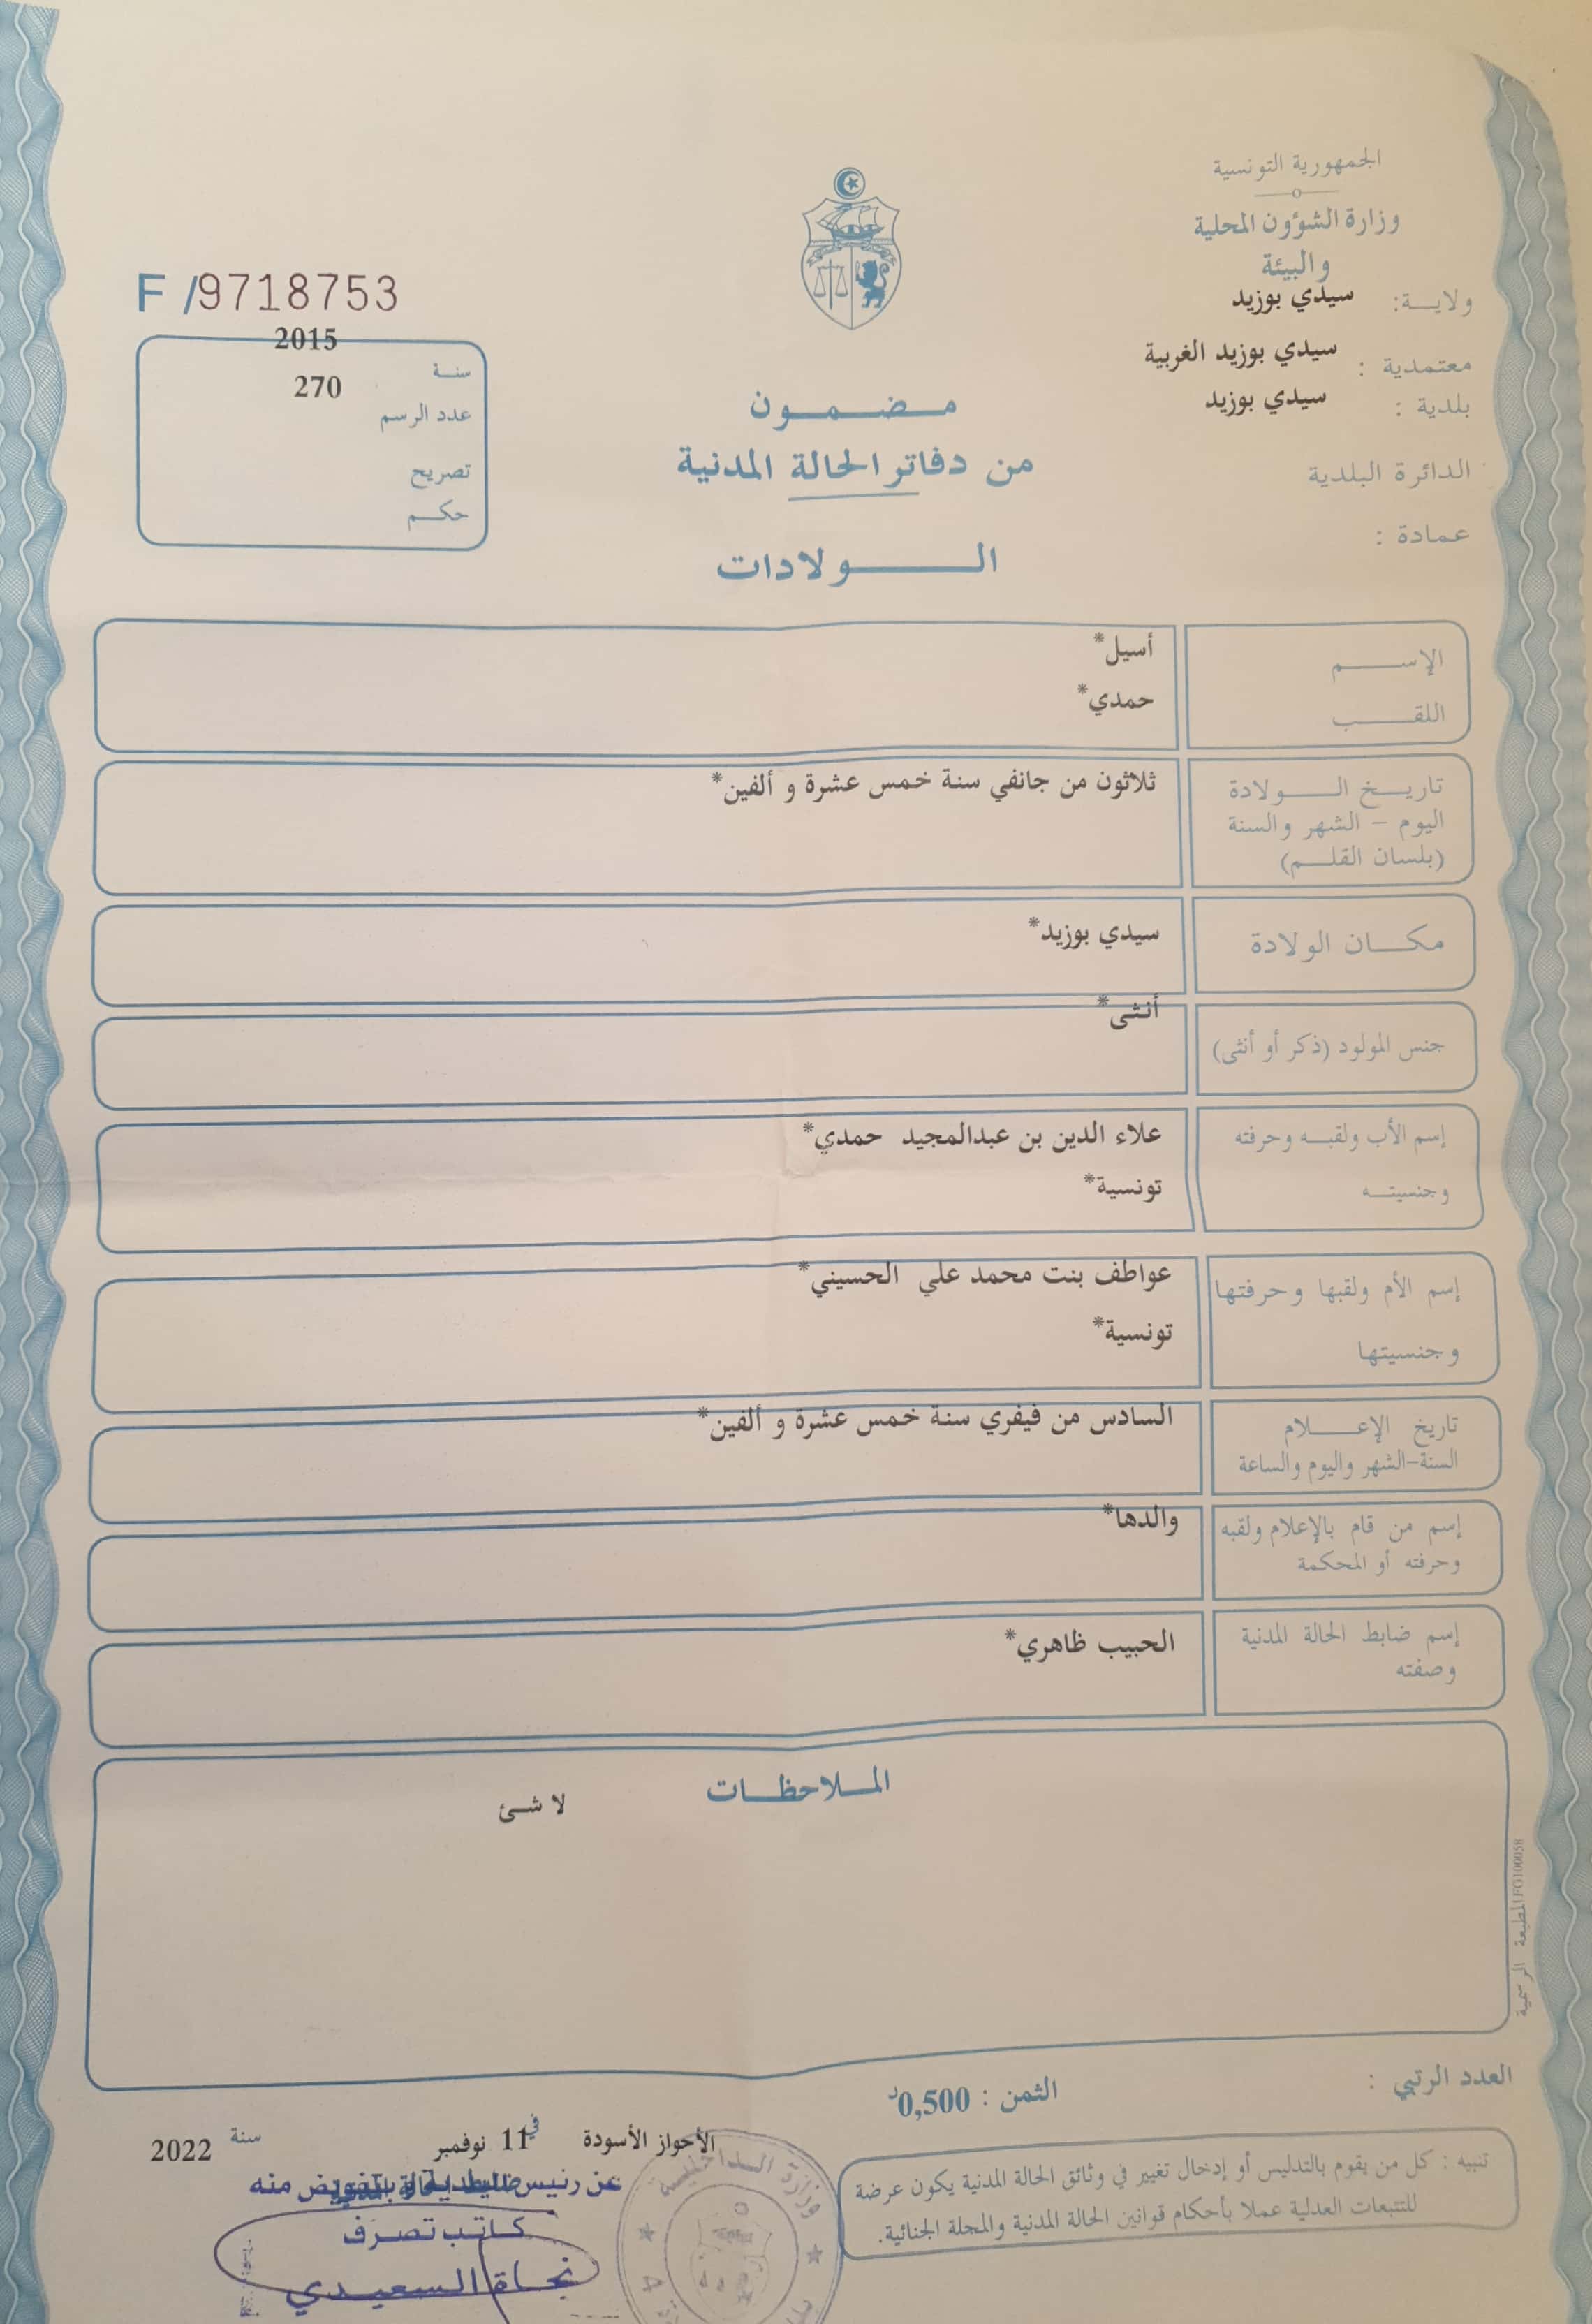 الجمهورية التونسية
وزارة الشؤون المحلية
والبيئة
ولاية: سيدي بوزيد
معتمدية : سيدي بوزيد الغربية
بلدية : سيدي بوزيد
الدائرة البلدية
عمادة :
F /9718753
2015
سنة
270
عدد الرسم
تصريح
حكم
مضمون
من دفاتر الحالة المدنية
الولادات
الإسم أسيل*
اللقب حمدي*
تاريخ الولادة ثلاثون من جانفي سنة خمس عشرة و ألفين*
اليوم - الشهر والسنة
(بلسان القلم)
مكان الولادة سيدي بوزيد*
أنثى*
جنس المولود (ذكر أو أنثى)
إسم الأب ولقبه وحرفته علاء الدين بن عبدالمجيد حمدي*
وجنسيته تونسية*
إسم الأم ولقبها وحرفتها عواطف بنت محمد علي الحسيني*
وجنسيتها تونسية*
تاريخ الإعلام السادس من فيفري سنة خمس عشرة و ألفين*
السنة-الشهر واليوم والساعة
إسم من قام بالإعلام ولقبه والدها*
وحرفته أو المحكمة
إسم ضابط الحالة المدنية الحبيب ظاهري*
وصفته
الملاحظات
لا شئ
المطبعة الرسمية
العدد الرتبي :
الثمن : 0,500د
الأحواز الأسودة في 11 نوفمبر سنة 2022
عن رئيس منه
كاتب تصرف
نجاة السعيدي
وزارة الداخلية
تنبيه : كل من يقوم بالتدليس أو إدخال تغيير في وثائق الحالة المدنية يكون عرضة
للتتبعات العدلية عملا بأحكام قوانين الحالة المدنية والمجلة الجنائية.